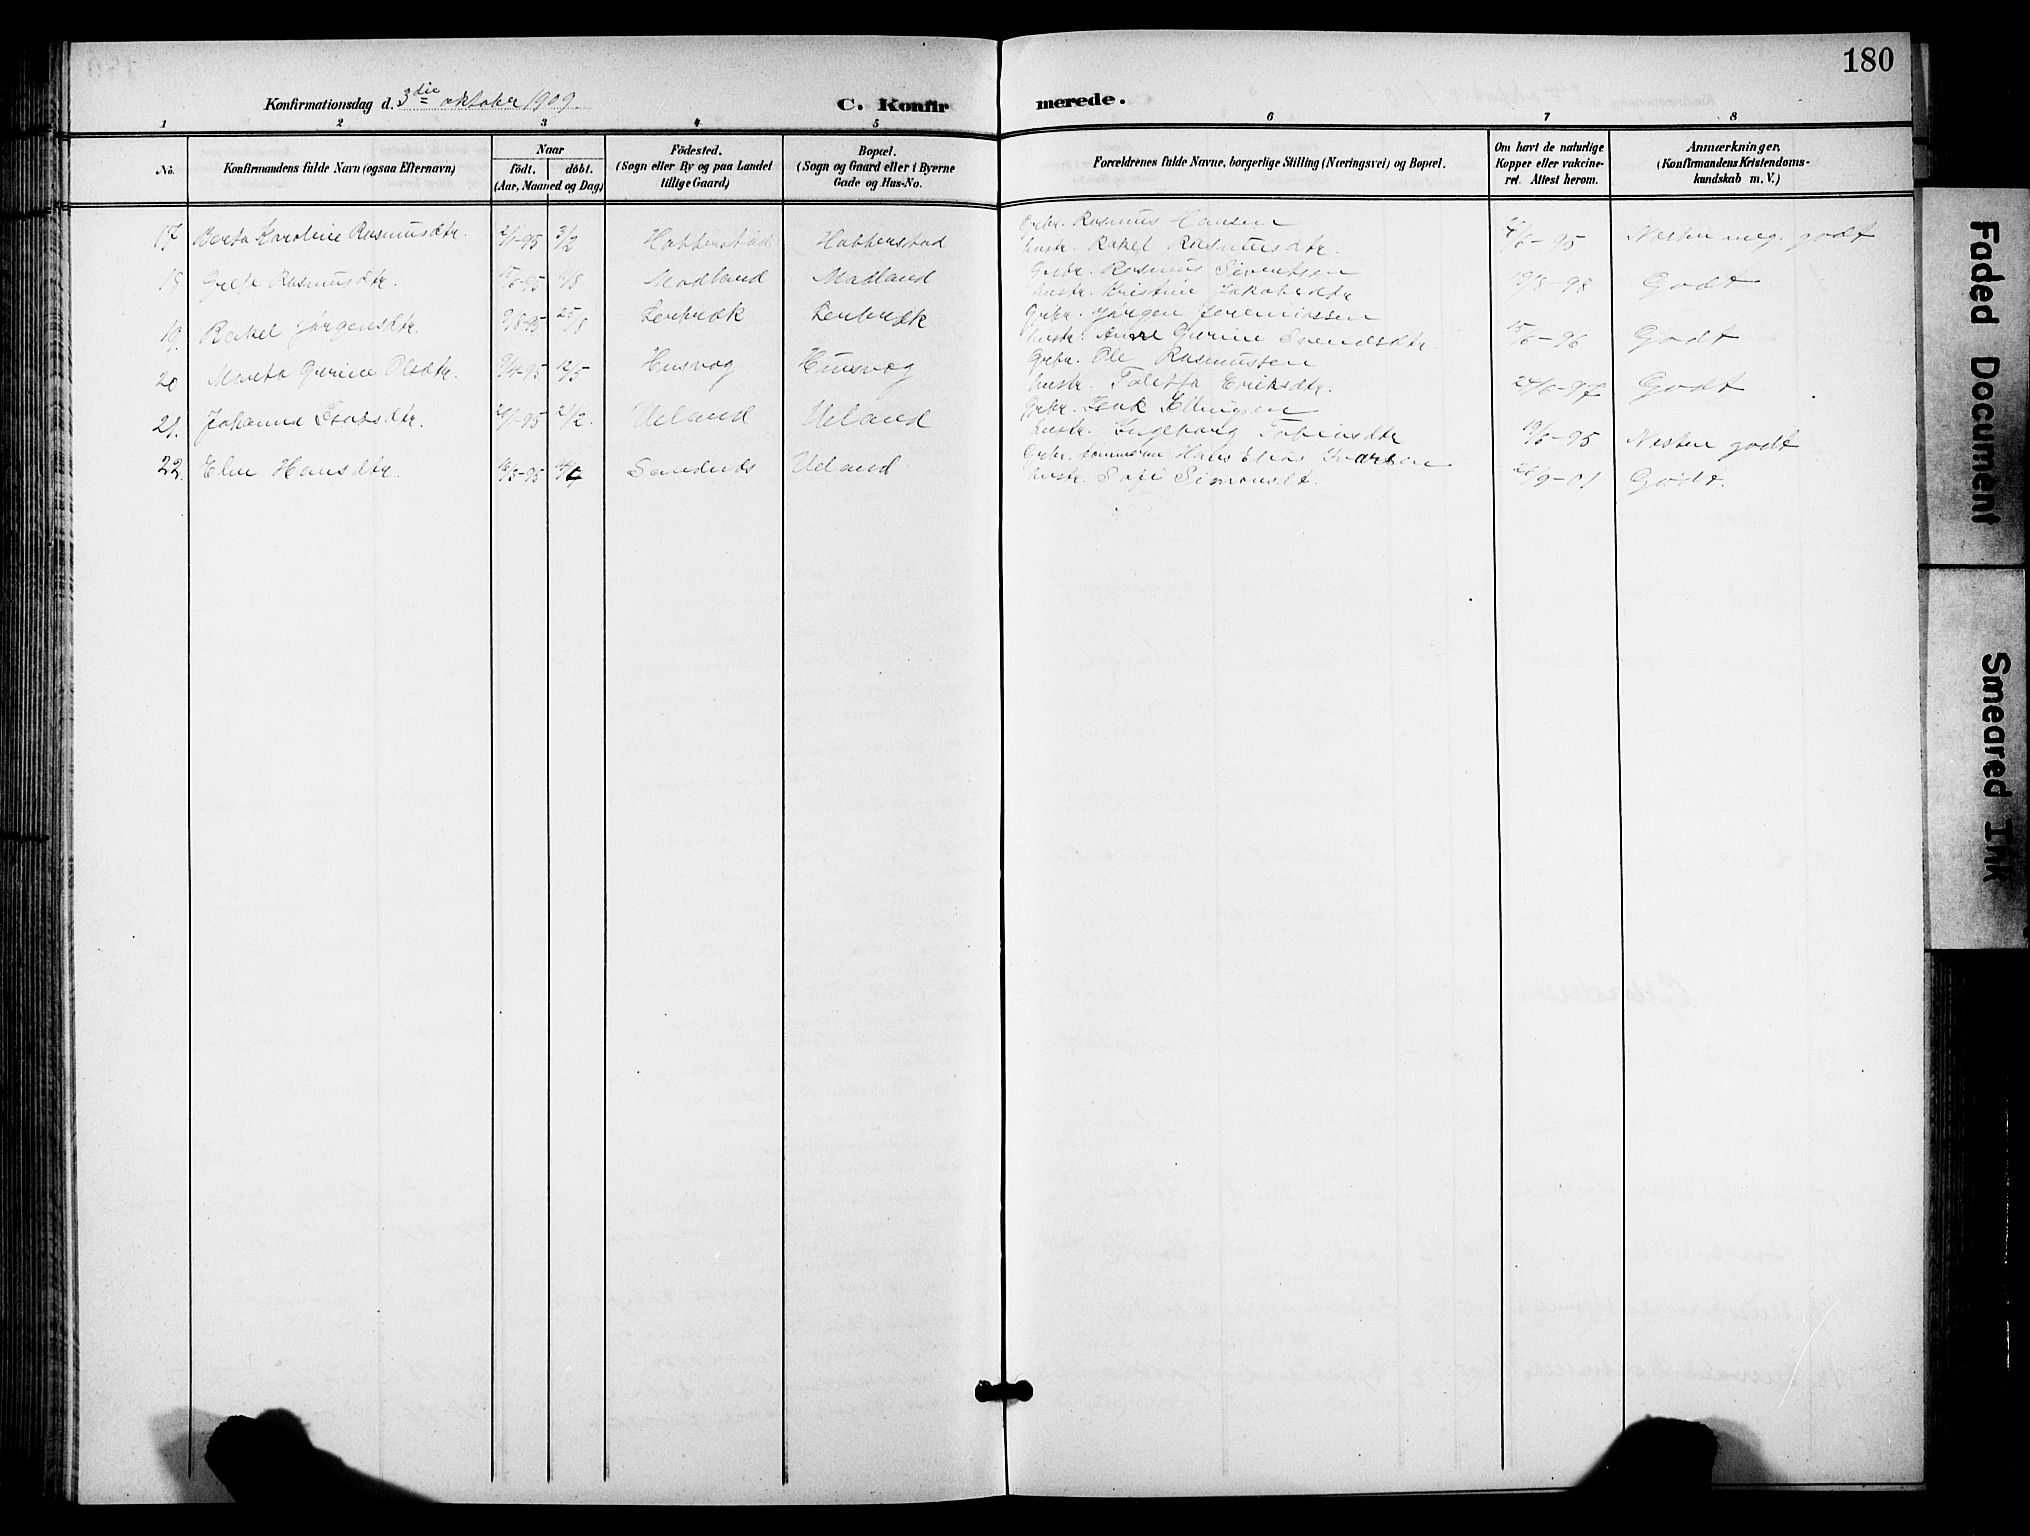 180
Konfirmationsdag d. 3die oktober 1909.
C. Konfirmerede.
1 2 3 4 5 6 7 8
No.
Konfirmandens fulde Navn (ogsaa Efternavn)
Naar
födt. döbt.
(Aar, Maaned og Dag)
Födested.
(Sogn eller By og paa Landet
tillige Gaard)
Bopæl.
(Sogn og Gaard eller i Byerne
Gade og Hus-No.
Forældrenes fulde Navne, borgerlige Stilling (Næringsvei) og Bopæl.
Om havt de naturlige
Kopper eller vakcine-
ret. Attest herom.
Anmærkninger.
(Konfirmandens Kristendoms-
kundskab m. V.)
17 Berta Karoline Rasmusdtr. 3/2 Habberstad Habberstad Grbr. Rasmus Hansen
hustr. Rakel Rasmusdtr. Nesten meg. godt
18 Rasmusdtr. Madland Madland Rasmus Sivertsen
hustr. Kristine Jakobsdtr 19/8-98 Godt
19. Rakel Jørgensdtr. 25/8 Lenbræk Lenbræk Jørgen Jeremiassen
hustr. Anne Gurine Svendsdtr 15/6-96 Godt
20 Gurine Olsdtr. 9/4-95 12/5 Husvog Husvog Ole Rasmussen
hustr. Tolette Eriksdtr. 24/6-97 Godt
21. Johanne Isaksdtr. 21/2. Ueland Ueland Isak
hustr. Ingeborg Tobiasdtr 19/6-95 Nesten godt
22. Hansdtr. Sandnes Ueland Hans Elias
hustr. Sofi Simonsdt. 26/9-01 Godt.
Faded Document
Smeared Ink